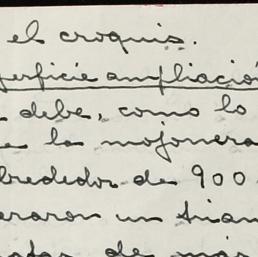 el croquis.
perficie ampliación
debe, como lo
e la mojonera
lrededor de 900
eraron un trian
de más